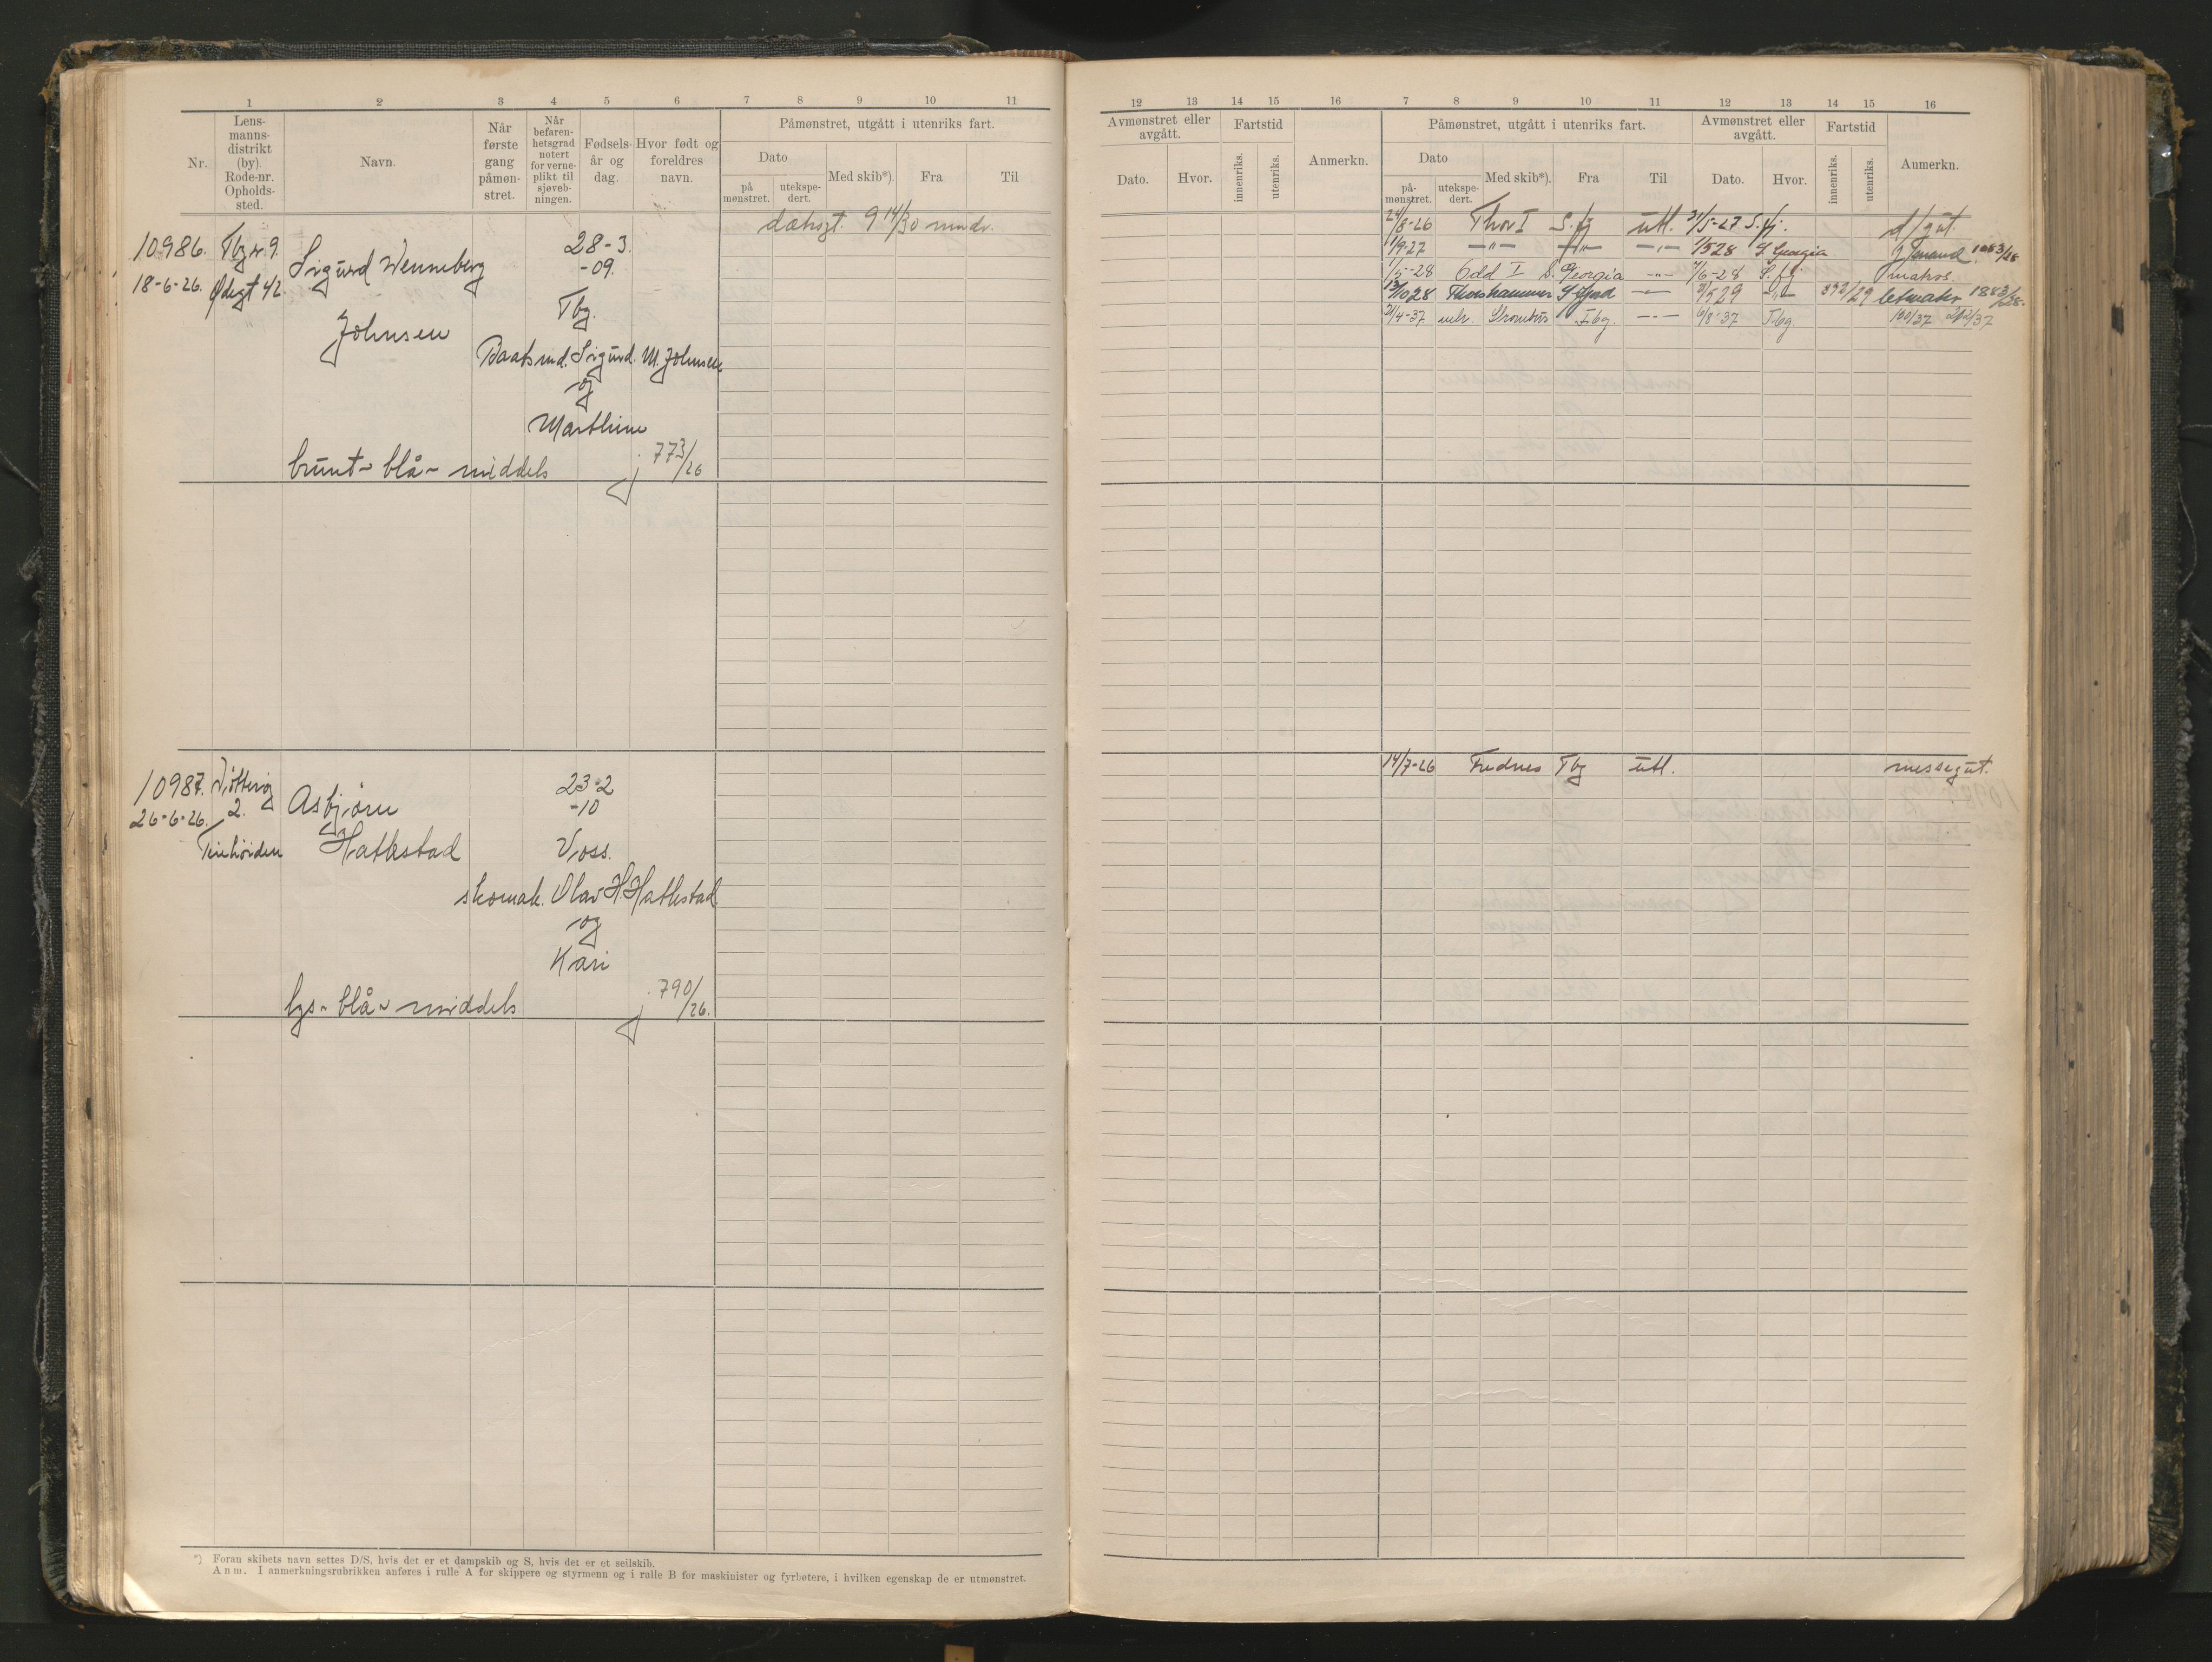 1 2 3 4 5 6 7 8 9 10 11
Nr.
Lens-
manns-
distrikt
(by).
Rode-nr.
Opholds-
sted.
Navn.
Når
første
gang
påmøn-
stret.
Når
befaren-
hetsgrad
notert
for verne-
plikt til
sjøveb-
ningen.
Fødsels-
år og
dag.
Hvor født og
foreldres
navn.
Påmønstret, utgått i utenriks fart.
Dato
på
mønstret.
utekspe-
dert.
Med skib*).
Fra
Til
10986. Tbg r. 9.
18-6-26. Ødegt 42.
Sigurd Wenneberg
Johnsen
28-3.
-09.
Tbg.
Baatsmd. Sigurd. M. Johnsen
og
Marthine
brunt- blå- middels
j. 773/26
9 14/30 mndr.
10987.
26-6-26. 2.
Teiehøiden
Asbjørn
Hatlestad
23-2
-10
Voss.
skomak. Olav H. Hatlestad
og
Kari
lys- blå- middels
j. 790/26.
*) Foran skibets navn settes D/S, hvis det er et dampskib og S, hvis det er et seilskib.
Anm. I anmerkningsrubrikken anføres i rulle A for skippere og styrmenn og i rulle B for maskinister og fyrbøtere, i hvilken egenskap de er utmønstret.
12 13 14 15 16 7 8 9 10 11 12 13 14 15 16
Avmønstret eller
avgått.
Dato.
Hvor.
Fartstid
innenriks.
utenriks.
Anmerkn.
Påmønstret, utgått i utenriks fart.
Dato
på-
mønstret.
utekspe-
dert.
Med skib*).
Fra
Til
Avmønstret eller
avgått.
Dato.
Hvor.
Fartstid
innenriks.
utenriks.
Anmerkn.
24/8-26 Thor I S.fj utl. 31/5-27 S.fj. d/gut.
1/9-27 -"- -"- -"- 1/5 28 S. Georgia
1/5-28 Odd I S. Georgia -"- 4/6-28 S.fj. matros.
13/10 28 Thorshammer S fjord -"- 31/5 29 -"- 392/29 letmatr
21/4-37 Tbg. -"- 6/8-37 Tbg 100/37 212/37
14/7-26 Frednes Tbg utl. messegut.